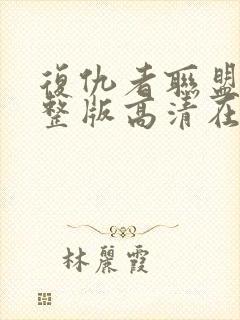 復仇者聯盟
整版高清在
林麗霞